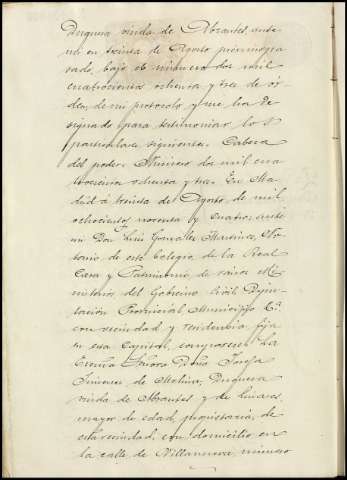 Duquesa viuda de Abrantes, ante
mi en treinta de Agosto próximo pa
sado, bajo el número dos mil
cuatrocientos ochenta y tres de ór-
den, de mi protocolo y me ha de
signado para testimoniar los
particulares siguientes. Cabeza
del poder. Número dos mil cua
trocientos ochenta y tres. En Ma
drid á treinta de Agosto de mil
ochocientos noventa y cuatro, ante
mi Don Luis Gonzalez Martinez, No
tario de este Colegio, de la Real
Casa y Patrimonio de varios Mi
nisterios, del Gobierno Civil Dipu
tación Provincial, Municipio &ª
con vecindad y residencia fija
en esta Capital, comparece: La
Excma Señora Doña Josefa
Jimenez de Molina, Duquesa
viuda de Abrantes y de Linares,
mayor de edad, propietaria, de
esta vecindad, con domicilio en
la calle de Villanueva, número